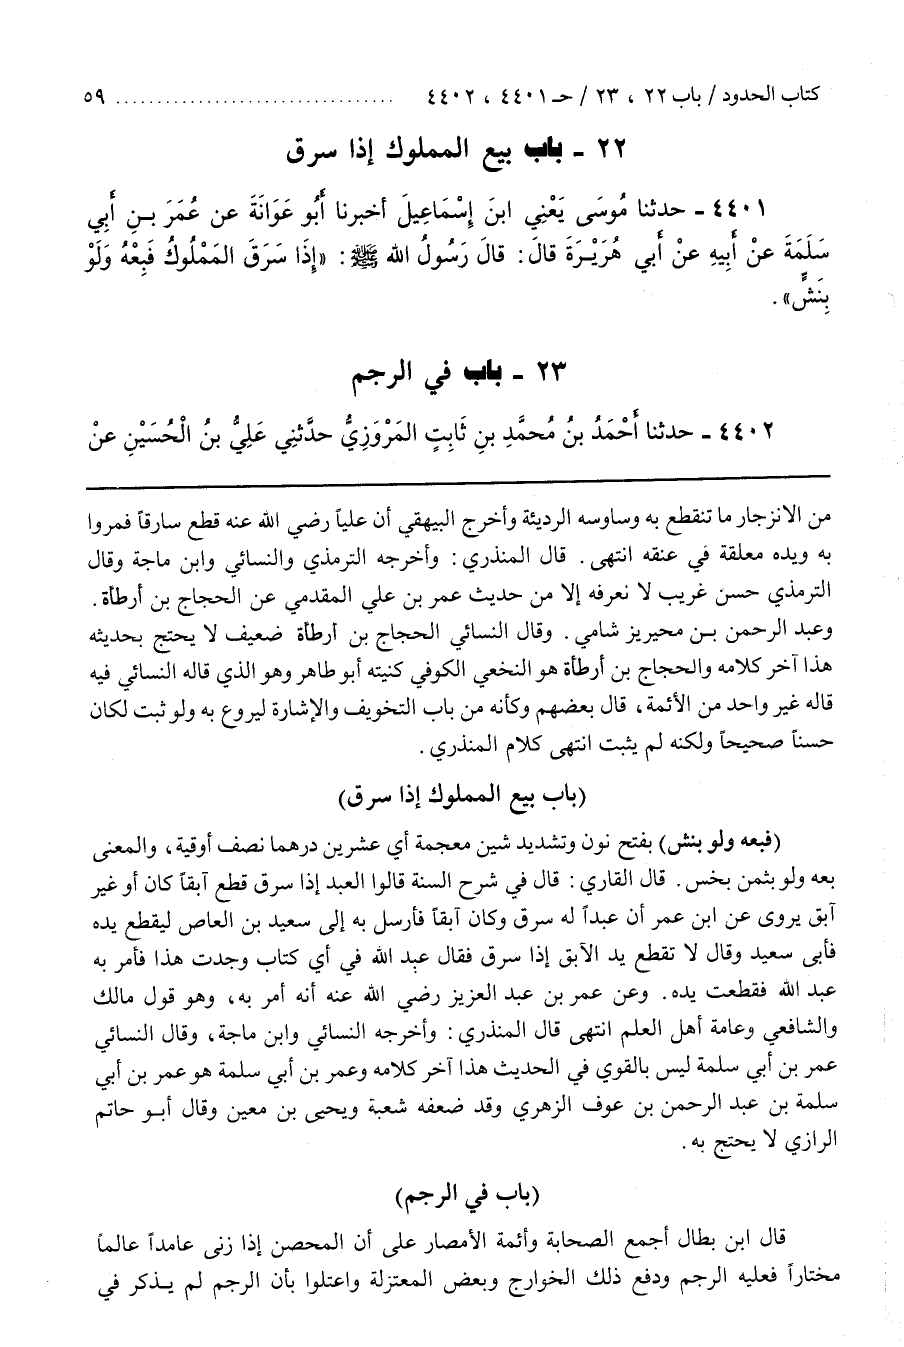 كتاب الحدود / باب ٢٢ ، ٢٣ / حـ ٤٤٠١ ، ٤٤٠٢ .................................. ٥٩
٢٢ - باب بيع المملوك إذا سرق
٤٤٠١ - حدثنا مُوسَى يَعْنِي ابنَ إِسْمَاعِيلَ أخبرنا أَبُو عَوَانَةَ عن عُمَرَ بـنِ أَبِي
سَلَمَةَ عنْ أَبِيهِ عنْ أَبي هُرَيْـرَةَ قالَ: قالَ رَسُولُ الله ﷺ: «إِذَا سَرَقَ المَمْلُوكُ فَبِعْهُ وَلَوْ
بِنَشٍّ».
٢٣ - باب في الرجم
٤٤٠٢ - حدثنا أَحْمَدُ بنُ مُحمَّدِ بنِ ثَابِتٍ المَرْوَزِيُّ حدَّثَنِي عَلِيُّ بنُ الْحُسَيْنِ عنْ
من الانزجار ما تنقطع به وساوسه الرديئة وأخرج البيهقي أن علياً رضي الله عنه قطع سارقاً فمروا
به ويده معلقة في عنقه انتهى. قال المنذري: وأخرجه الترمذي والنسائي وابن ماجة وقال
الترمذي حسن غريب لا نعرفه إلا من حديث عمر بن علي المقدمي عن الحجاج بن أرطأة.
وعبد الرحمن بـن محيريز شامي. وقال النسائي الحجاج بن أرطأة ضعيف لا يحتج بحديثه
هذا آخر كلامه والحجاج بن أرطأة هو النخعي الكوفي كنيته أبو طاهر وهو الذي قاله النسائي فيه
قاله غير واحد من الأئمة، قال بعضهم وكأنه من باب التخويف والإشارة ليروع به ولو ثبت لكان
حسناً صحيحاً ولكنه لم يثبت انتهى كلام المنذري.
(باب بيع المملوك إذا سرق)
(فبعه ولو بنش) بفتح نون وتشديد شين معجمة أي عشرين درهما نصف أوقية، والمعنى
بعه ولو بثمن بخس. قال القاري: قال في شرح السنة قالوا العبد إذا سرق قطع آبقاً كان أو غير
آبق يروى عن ابن عمر أن عبداً له سرق وكان آبقاً فأرسل به إلى سعيد بن العاص ليقطع يده
فأبى سعيد وقال لا تقطع يد الآبق إذا سرق فقال عبد الله في أي كتاب وجدت هذا فأمر به
عبد الله فقطعت يده. وعن عمر بن عبد العزيز رضي الله عنه أنه أمر به، وهو قول مالك
والشافعي وعامة أهل العلم انتهى قال المنذري: وأخرجه النسائي وابن ماجة، وقال النسائي
عمر بن أبي سلمة ليس بالقوي في الحديث هذا آخر كلامه وعمر بن أبي سلمة هو عمر بن أبي
سلمة بن عبد الرحمن بن عوف الزهري وقد ضعفه شعبة ويحيى بن معين وقال أبـو حاتم
الرازي لا يحتج به.
(باب في الرجم)
قال ابن بطال أجمع الصحابة وأئمة الأمصار على أن المحصن إذا زنى عامداً عالماً
مختاراً فعليه الرجم ودفع ذلك الخوارج وبعض المعتزلة واعتلوا بأن الرجم لم يـذكر في